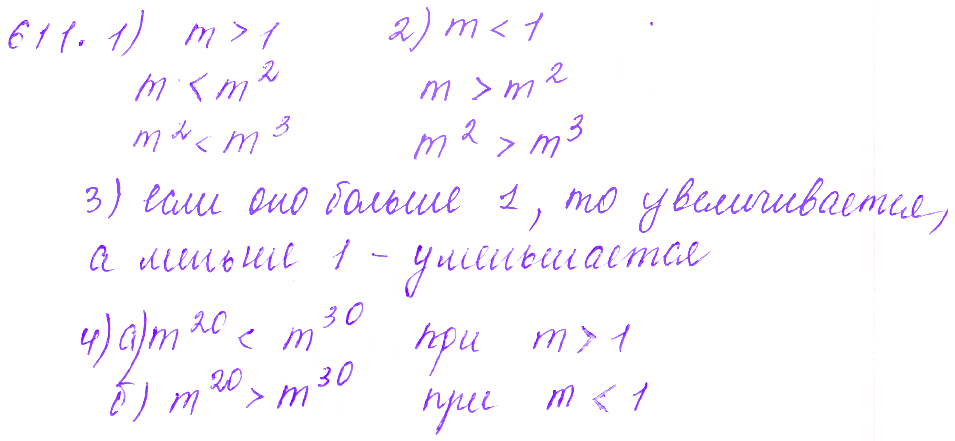 611. 1) m > 1 2) m < 1
m < m² m > m²
m² < m³ m² > m³
3) если оно больше 1, то увеличивается,
а меньше 1 - уменьшается
4) а) m²⁰ < m³⁰ при m > 1
б) m²⁰ > m³⁰ при m < 1